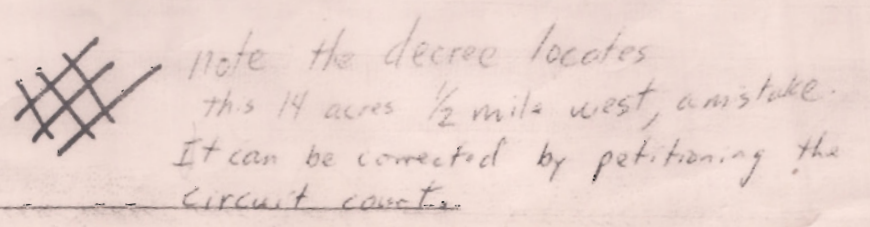 note the decree locates
this 14 acres 1/2 mile west, a mistake.
It can be corrected by petitioning the
circuit court.